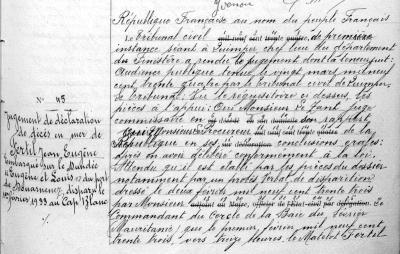 République Française au nom du peuple Français
Le Tribunal civil de première
instance séant à Quimper, chef lieu du département
du Finistère a rendu le jugement dont la teneur suit:
Audience publique tenue le vingt mars mil neuf
cent trente quatre par le tribunal civil de Quimper.
Le tribunal, Vu le réquisitoire ci dessus, les
pièces à l'appui: Ouï Monsieur de juge
commissaire en son rapport,
Ouï Monsieur Procureur de la
République en ses, conclusions orales:
Après en avoir délibéré conformément à la loi:
Attendu que il est établi par les pièces du dossier
notamment par un procès verbal de disparition
dressé le deux février mil neuf cent trente trois
par Monsieur
Commandant du Cercle de la Baie du Lévrier
(Mauritanie) que le premier février mil neuf cent
trente trois, vers treize heures le Matelot Pertel
N° 45
Jugement de déclaration
de décès en mer de
Pertel Jean Eugène
embarqué sur le Dundée
"Eugène et Louis" du port
de Douarnenez, disparu le
1er février 1933 au Cap Blanc